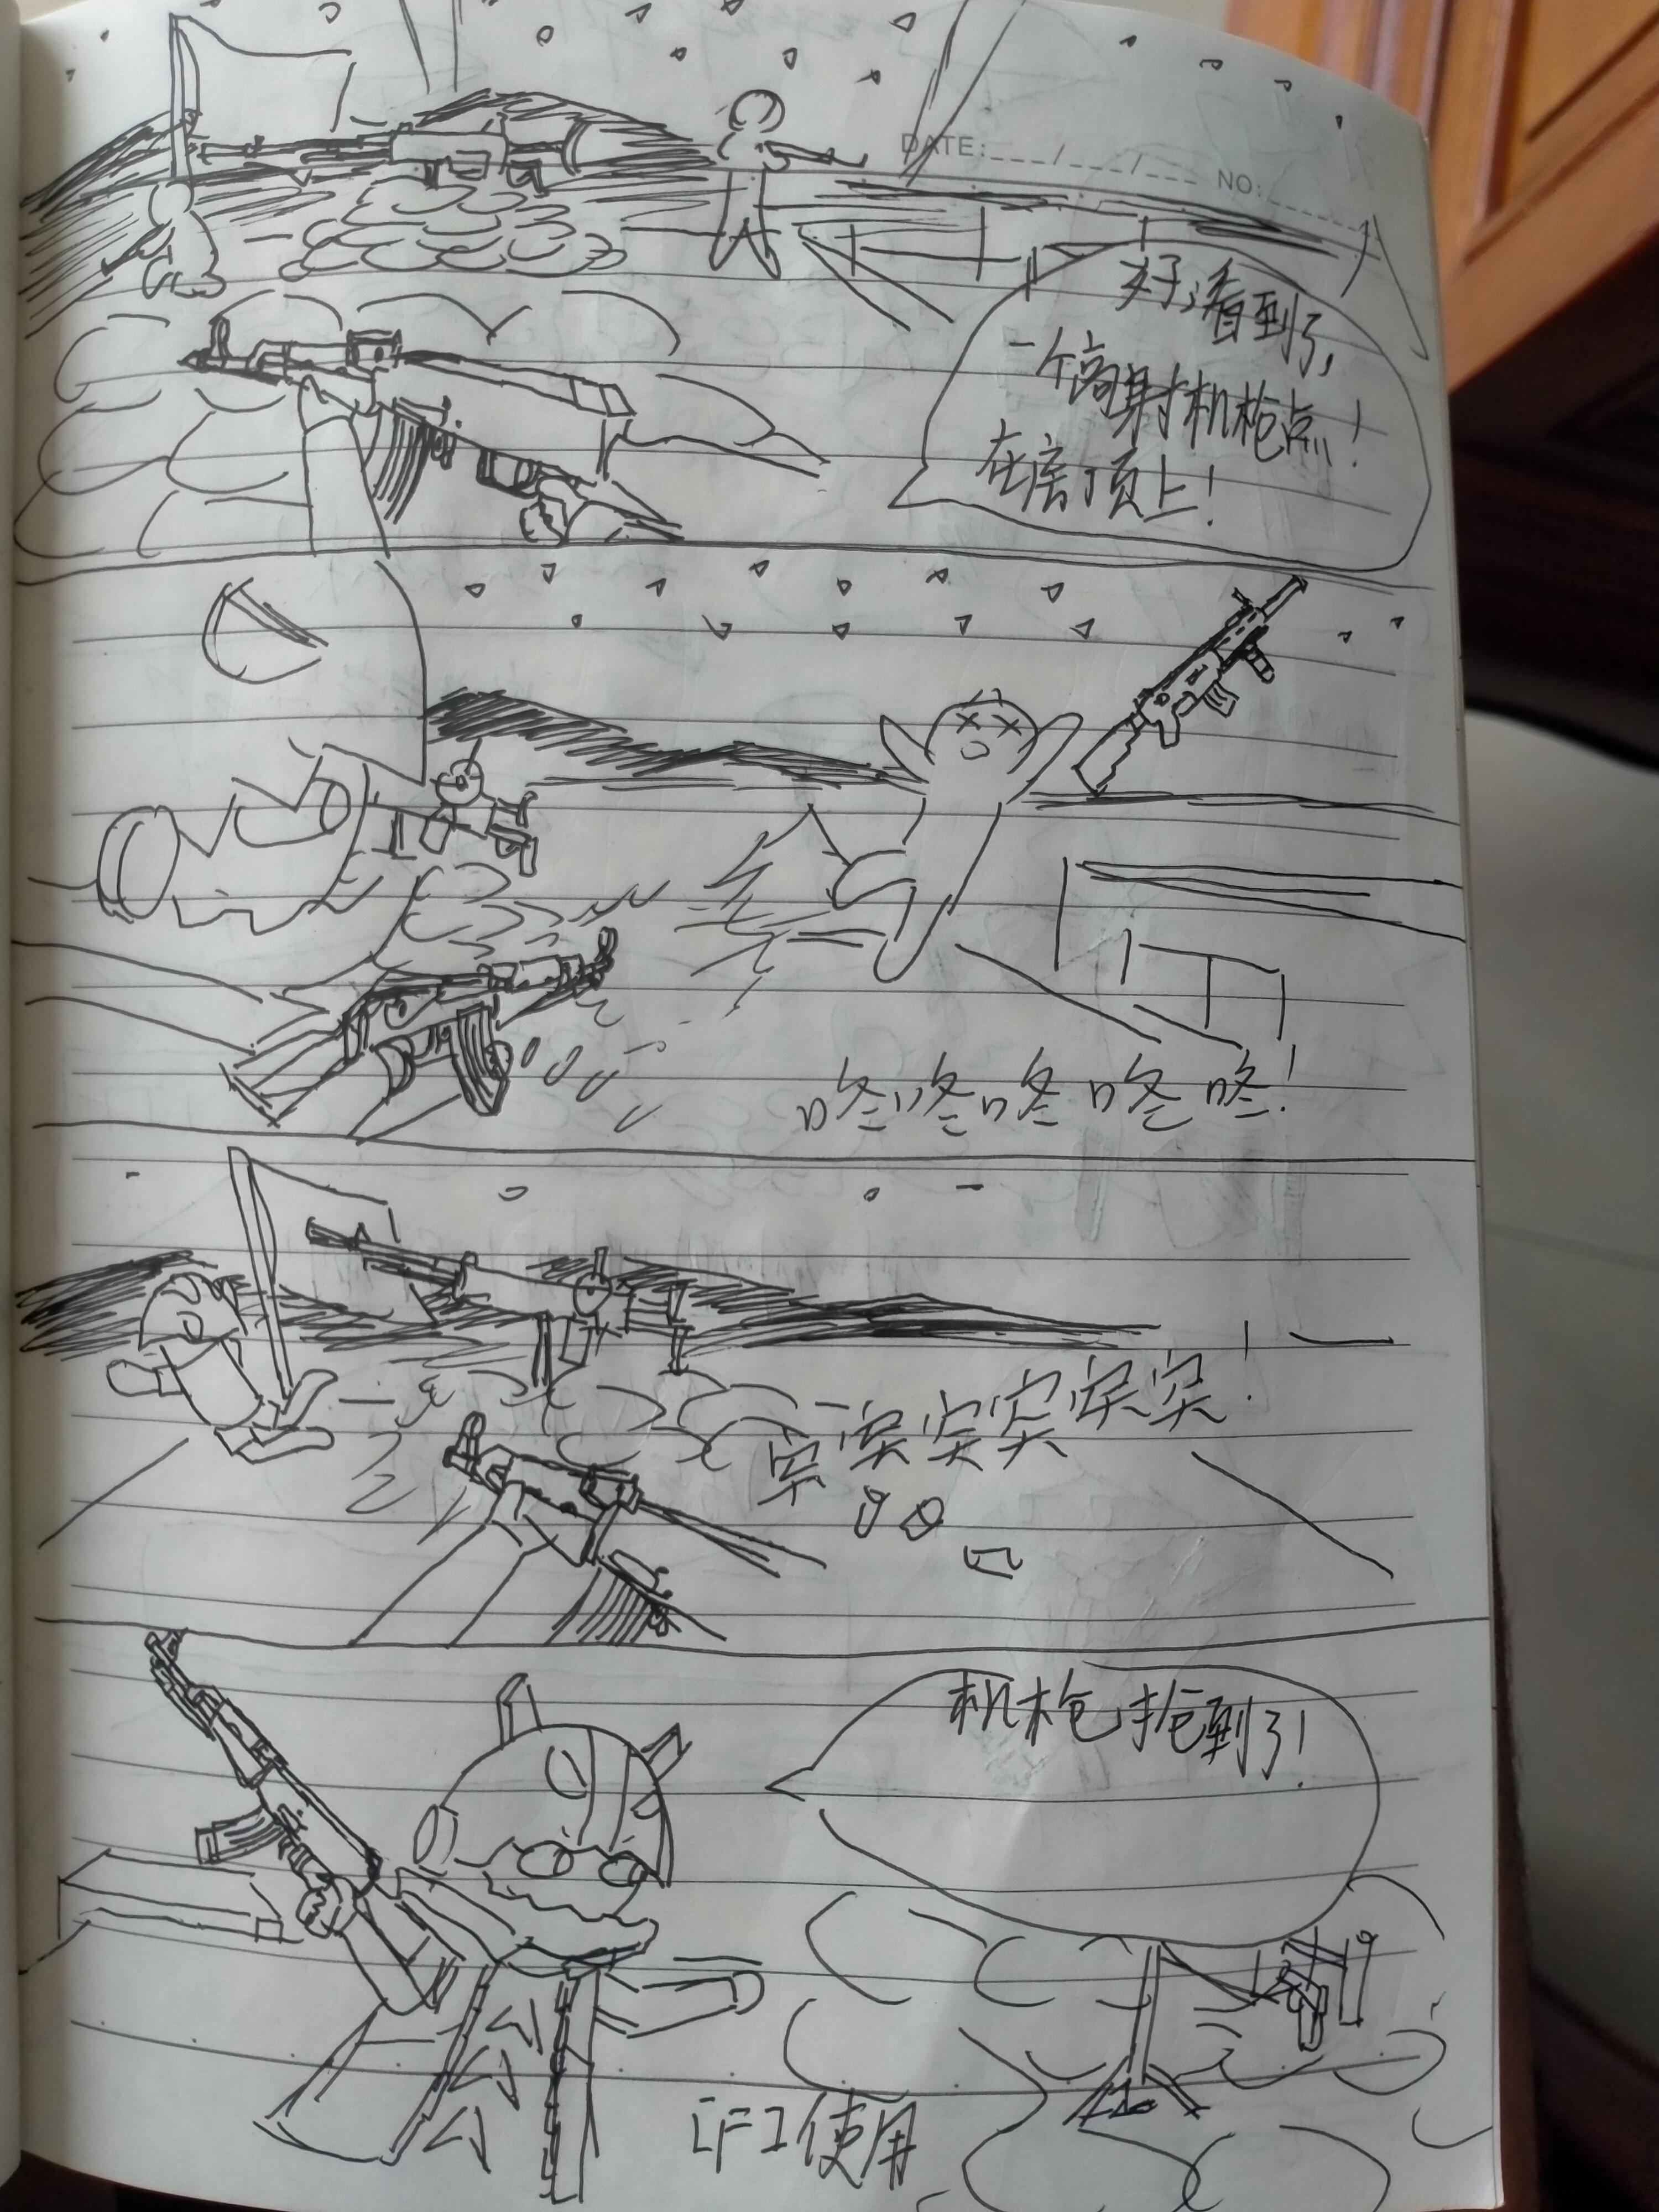 DATE:___/___/___ NO:______
好，看到了，
一个高射机枪点！
在房顶上！
咚咚咚咚咚！
突突突突突突！
机枪抢到了！
[F]使用